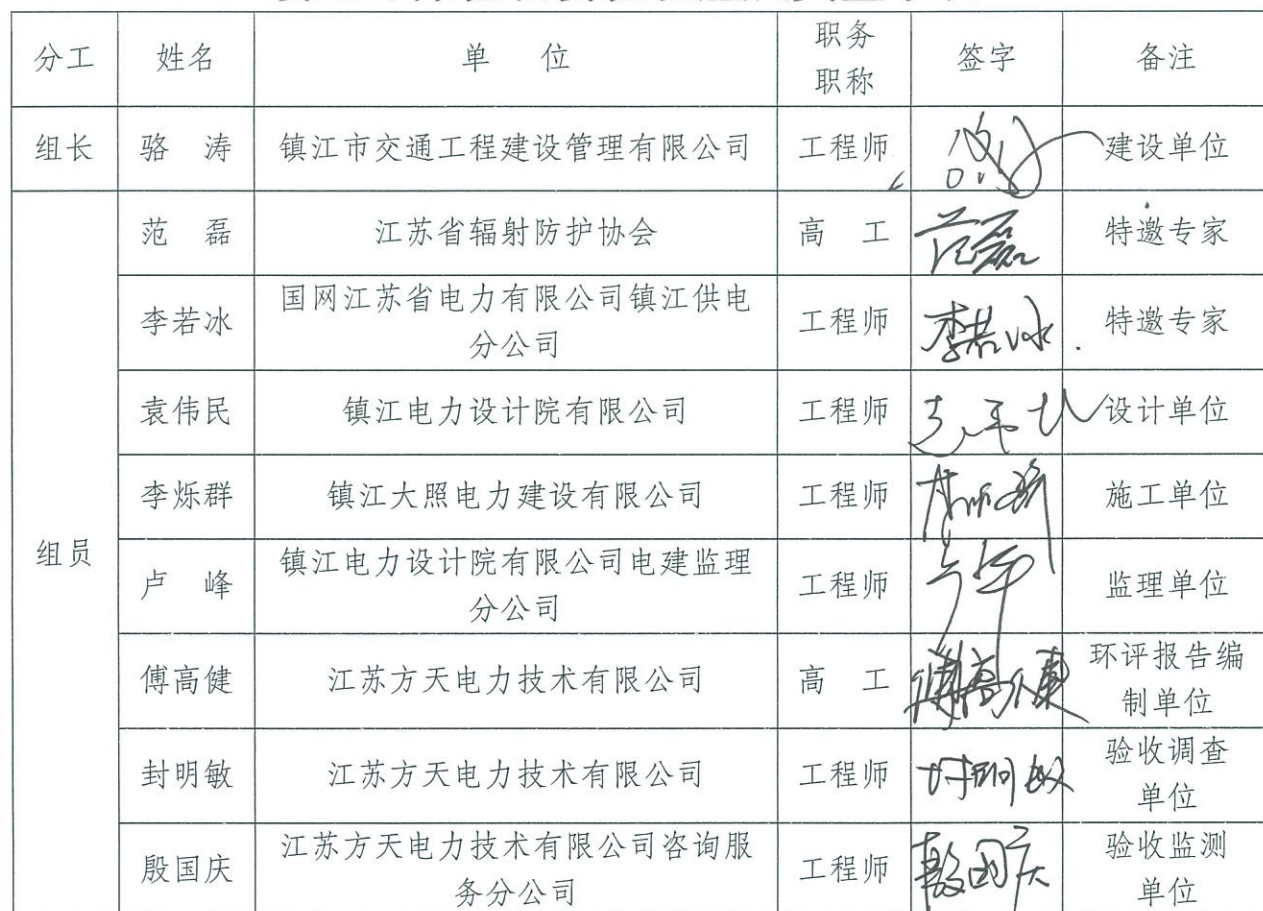 分工 姓名 单 位 职务职称 签字 备注
组长 骆 涛 镇江市交通工程建设管理有限公司 工程师 建设单位
组员
范 磊 江苏省辐射防护协会 高 工 范磊 特邀专家
李若冰 国网江苏省电力有限公司镇江供电
分公司 工程师 李若冰 特邀专家
袁伟民 镇江电力设计院有限公司 工程师 设计单位
李烁群 镇江大照电力建设有限公司 工程师 施工单位
卢 峰 镇江电力设计院有限公司电建监理
分公司 工程师 监理单位
傅高健 江苏方天电力技术有限公司 高 工 傅高健 环评报告编
制单位
封明敏 江苏方天电力技术有限公司 工程师 封明敏 验收调查
单位
殷国庆 江苏方天电力技术有限公司咨询服
务分公司 工程师 殷国庆 验收监测
单位